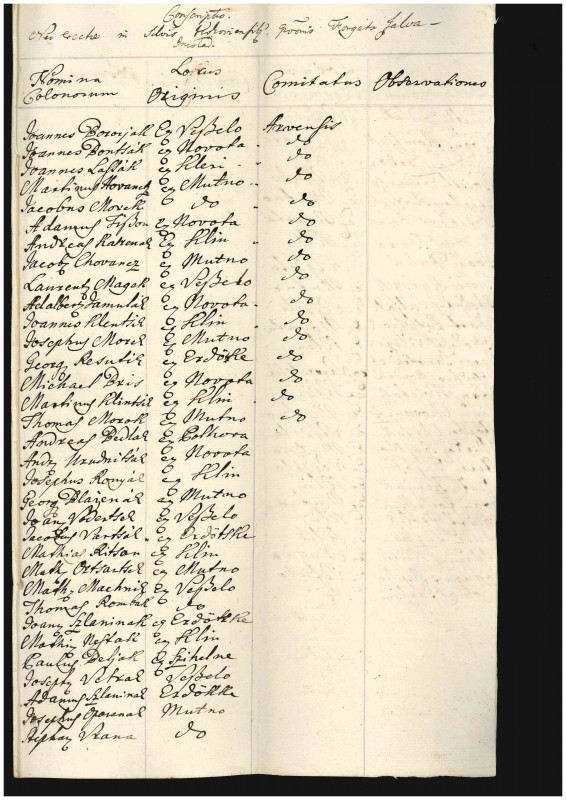 Conscriptio
Neo erectae in Silvis
Nomina Locus Comitatus Observationes
Colonorum Originis
Joannes Ex Veßelo Arvensis
Joannes Bontsik ex Novota do
Joannes Laßák ex Kleri do
Martinus Hovanetz ex Mutno do
Jacobus Morek do do
Adamus Fißon Ex Novota do
Andreas Ex Klin do
Jacobq Chovancz ex Mutno do
Laurentq Magek ex Veßelo do
Adalbertq Jamulak ex Novota do
Joannes Klentsik ex Klin do
Josephus Morek Ex Mutno do
Georg Resutik ex Erdötke do
Michael Bris ex Novota do
Martinus Klintsik ex Klin do
Thomas Morak Ex Mutno do
Andreas Bedlak Ex Polhora
Andr ex Novota
Josephus Ronyak ex Klin
Georg Blaienak ex Mutno
Joan Vodertsek Ex Veßelo
Jacobus Vartsik ex Erdötske
Mathias Kitson ex Klin
Math Ortsartsek ex Mutno
Math Machnik Ex Veßelo
Thomas Rombak do
Joany Szlaninak ex Erdötske
Mathiq Nestak ex Klin
Paulus Beljak Ex Szihelne
Joseph Vetrak Veßelo
Adamus Szlaninak Erdökke
Josephus Oporanak Mutno
Stephan Vrana do